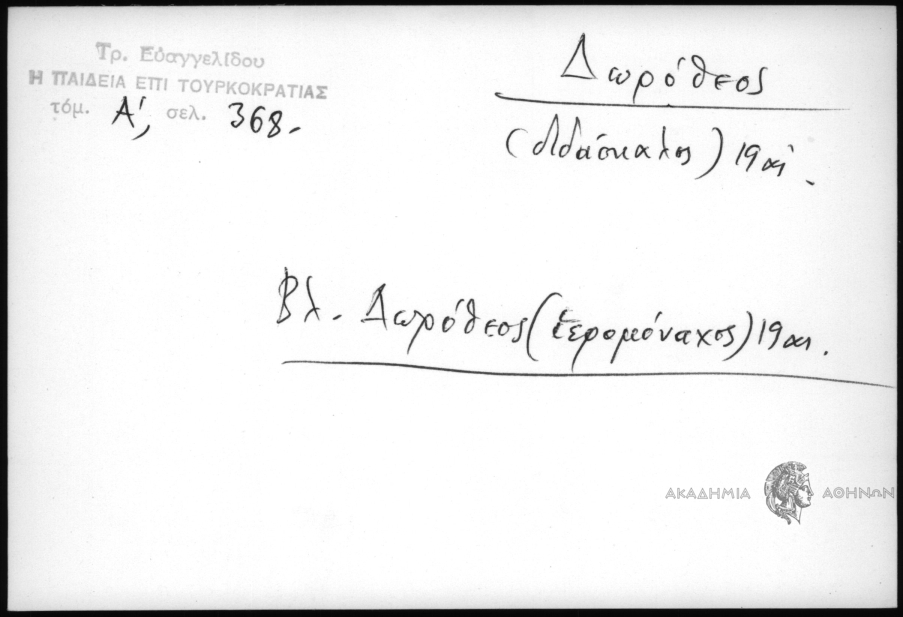 Τρ. Εὐαγγελίδου
Η ΠΑΙΔΕΙΑ ΕΠΙ ΤΟΥΡΚΟΚΡΑΤΙΑΣ
τόμ. Α', σελ. 368.
Δωρόθεος
(διδάσκαλος) 19 αι.
Βλ. Δωρόθεος (ἱερομόναχος) 19 αι.
ΑΚΑΔΗΜΙΑ ΑΘΗΝΩΝ